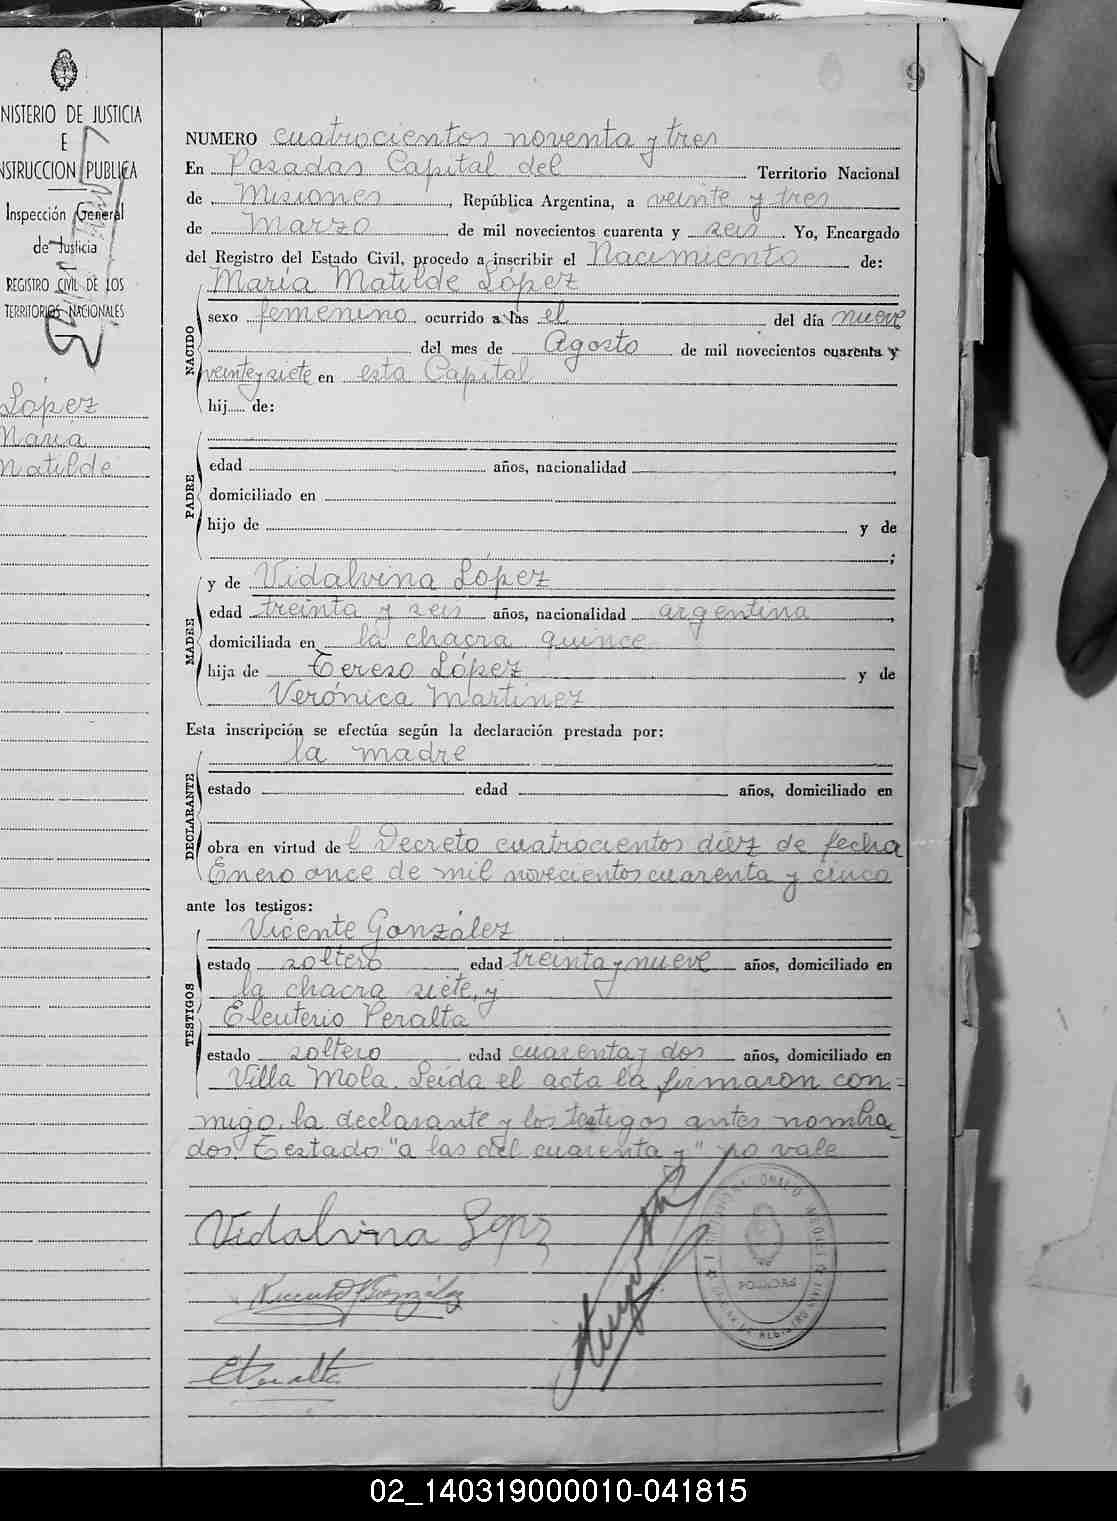 9
NISTERIO DE JUSTICIA
E
NSTRUCCION PUBLICA
Inspección General
de Justicia
REGISTRO CIVIL DE LOS
TERRITORIOS NACIONALES
López
María
Matilde
NUMERO cuatrocientos noventa y tres
En Posadas Capital del Territorio Nacional
de Misiones, República Argentina, a veinte y tres
de Marzo de mil novecientos cuarenta y seis. Yo, Encargado
del Registro del Estado Civil, procedo a inscribir el Nacimiento de:
María Matilde López
NACIDO
sexo femenino ocurrido a las el del día nueve
del mes de Agosto de mil novecientos cuarenta y
veinte y siete en esta Capital
hij de:
PADRE
edad años, nacionalidad ,
domiciliado en
hijo de y de
;
MADRE
y de Vidalvina López
edad treinta y seis años, nacionalidad argentina,
domiciliada en la chacra quince
hija de Terezo López y de
Verónica Martinez
Esta inscripción se efectúa según la declaración prestada por:
la madre
DECLARANTE
estado edad años, domiciliado en
obra en virtud del Decreto cuatrocientos diez de fecha
Enero once de mil novecientos cuarenta y cinco
ante los testigos:
Vicente González
TESTIGOS
estado soltero edad treinta y nueve años, domiciliado en
la chacra siete, y
Eleuterio Peralta
estado soltero edad cuarenta y dos años, domiciliado en
Villa Mola. Leída el acta la firmaron con-
migo, la declarante y los testigos antes nombra-
dos. Testado "a las del cuarenta y" no vale
Vidalvina Lopz
Vicente González
EPeralta
POSADAS
02_140319000010-041815